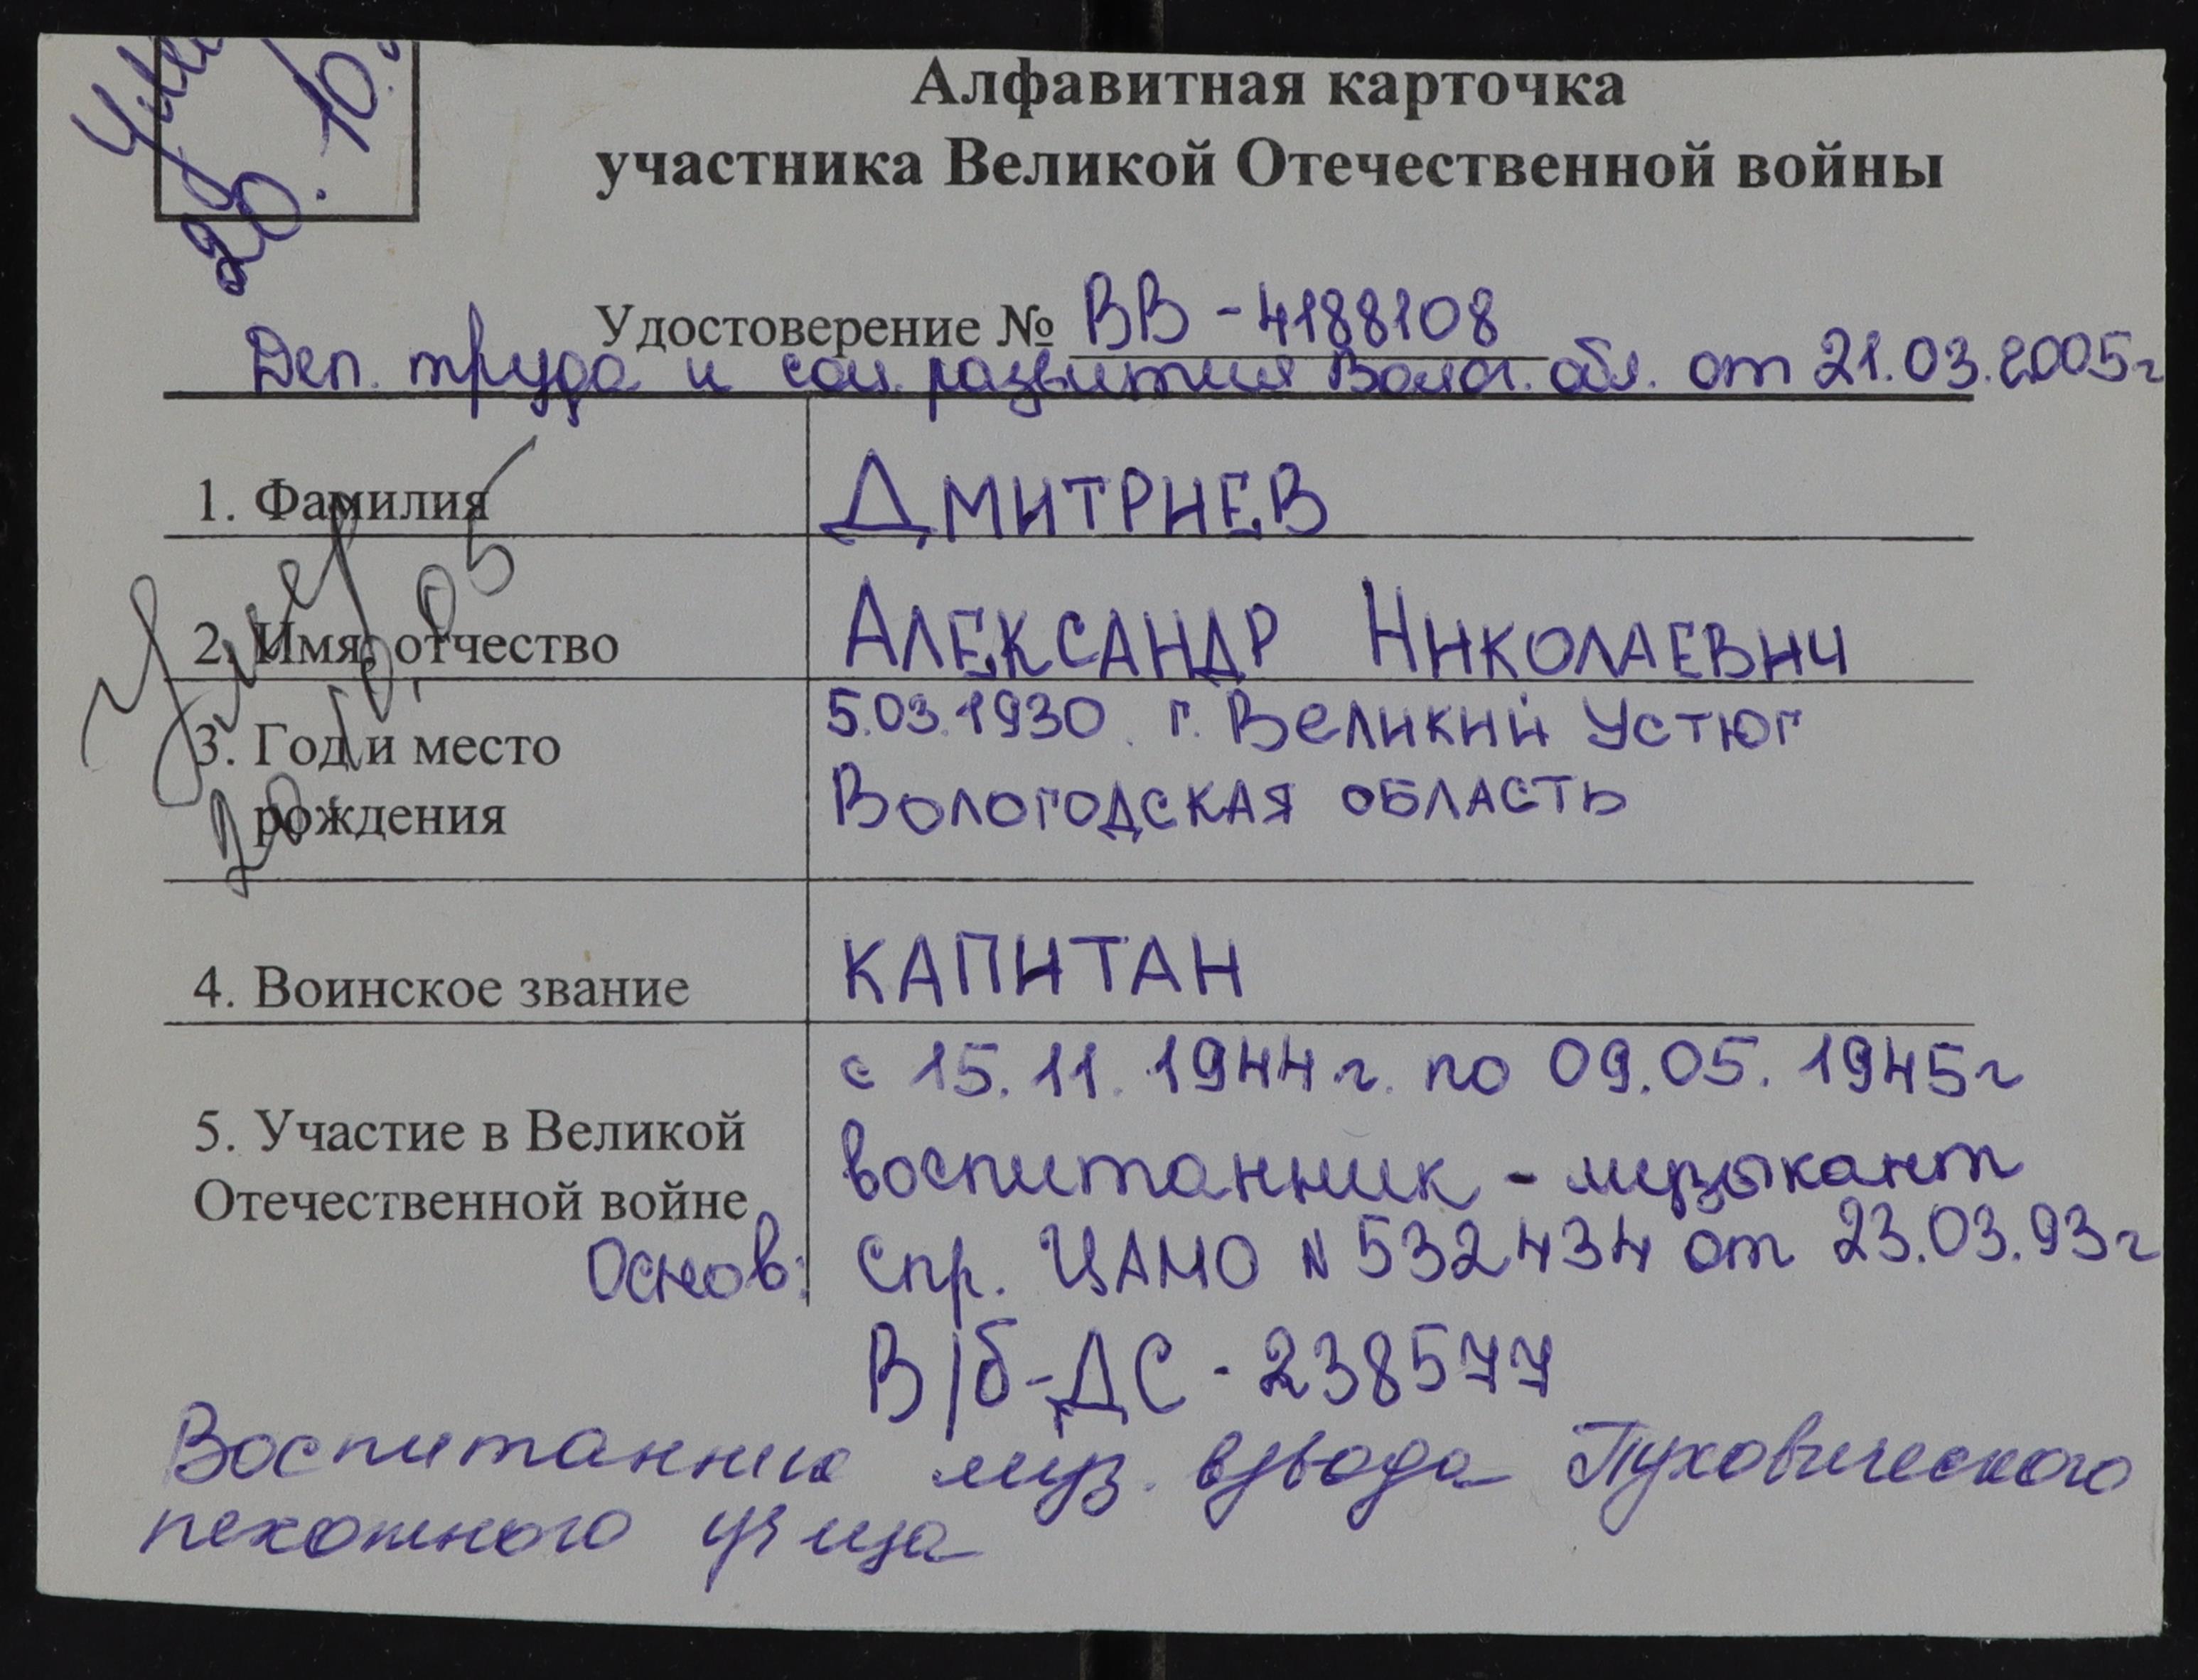 Алфавитная карточка
участника Великой Отечественной войны
20. 10.
Удостоверение № ВВ - 4188108
Деп. труда и соц. развития Волог. обл. от 21.03.2005г
1. Фамилия
ДМИТРИЕВ
2. Имя, отчество
АЛЕКСАНДР НИКОЛАЕВИЧ
3. Год и место
рождения
5.03.1930. г. Великий Устюг
Вологодская область
Умер
20.10.05
4. Воинское звание
КАПИТАН
5. Участие в Великой
Отечественной войне
с 15.11.1944г. по 09.05.1945г
воспитанник - музыкант
Основ: Спр. ЦАМО N 532434 от 23.03.93г
В/б-ДС - 238577
Воспитанник муз. взвода Пуховического
пехотного уч-ща